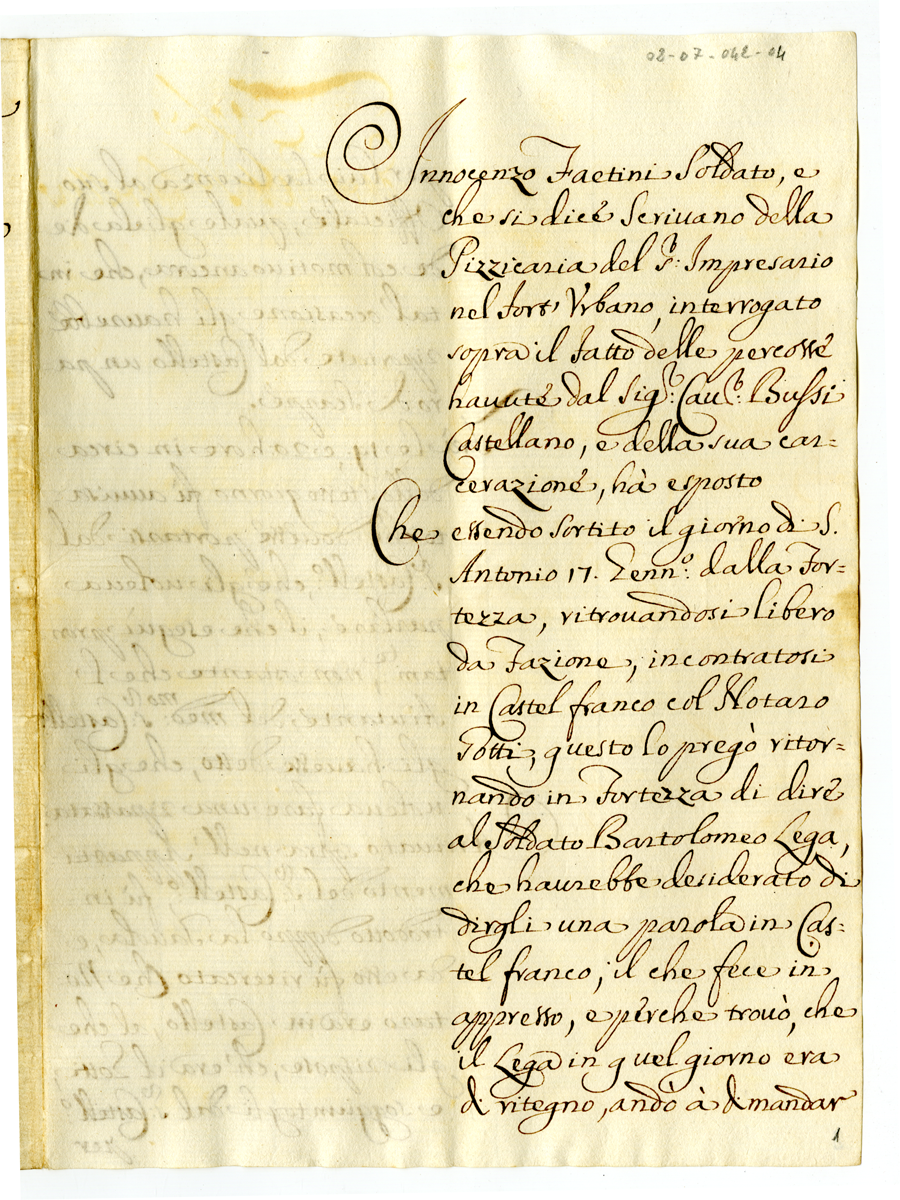 02-07-042-04
Innocenzo Faetini Soldato, e
che si dice Scrivano della
Pizzicaria del Sr: Impresario
nel Fort' Vrbano, interrogato
sopra il Fatto delle percosse
havute dal Sigr: Cavr: Bussi
Castellano, e della sua car=
cerazione, hà esposto
Che essendo sortito il giorno di S.
Antonio 17. Genno: dalla For=
tezza, ritrovandosi libero
da Fazione, incontratosi
in Castel franco col Notaro
Totti, questo lo pregò ritor=
nando in Fortezza di dire
al Soldato Bartolomeo Lega,
che haurebbe desiderato di
dirgli una parola in Cas=
tel franco; il che fece in
appresso, e perche trovò, che
il Lega in quel giorno era
di ritegno, andò à dimandar
1